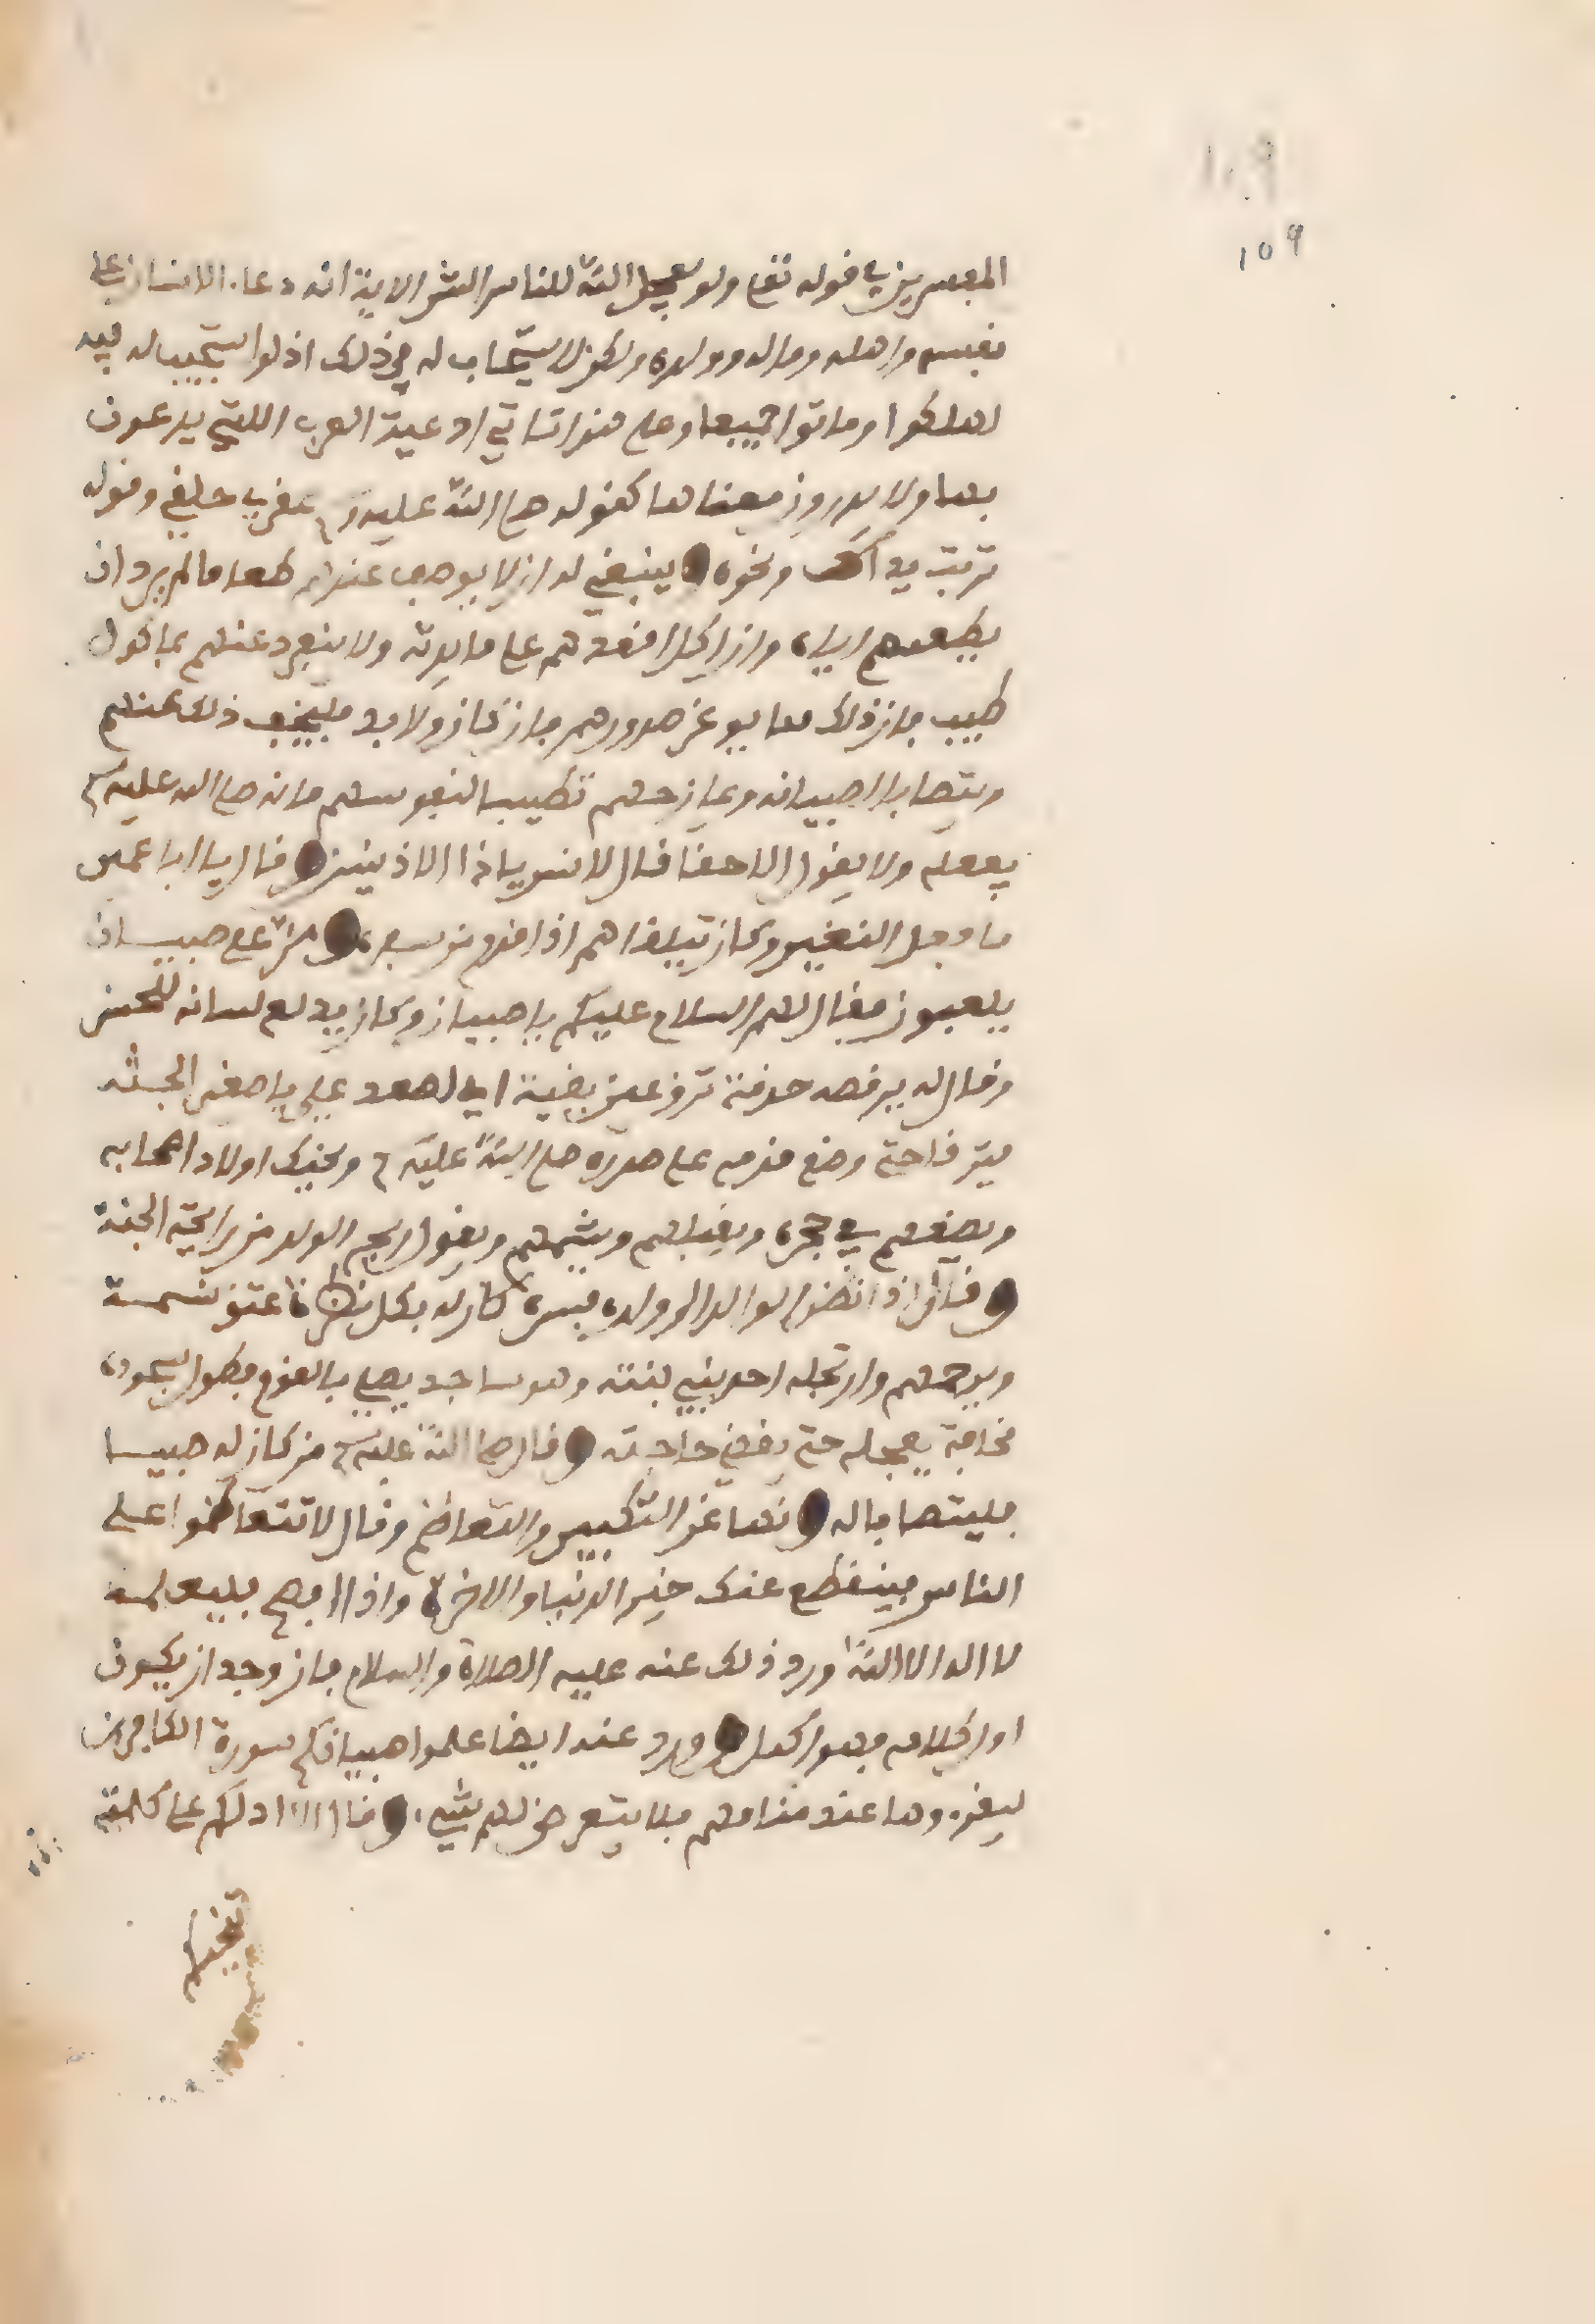 109
109
المفسرين في قوله تعلى ولو يعجل الله للناس الشر الاية انه دعاء الانسان على
نفسه واهله وماله وولده ولكن لا يستجاب له في ذلك اذ لو استجيب له فيه
لهلكوا وماتوا جميعا وعلى هذا تاتي ادعية العرب اللتي يدعون
بها ولا يدرون معناها كقوله صلى الله عليه وسلم عقرى حلقى وقوله
تربت يداك ونحوه وينبغي له ان لا يوصف عندهم طعاما لم يرد ان
يطعمهم اياه وان اكل اقعدهم على مايدته ولا ينفرد عنهم بماكول
طيب فان ذلك مما يوغر صدورهم فان كان ولا بد فليخف ذلك عنهم
ويتصابا لصبيانه ويمازحهم تطييبا لنفوسهم فانه صلى الله عليه وسلم
يفعله ولا يقول الا حقا قال لانس ياذا الاذينين وقال يا ابا عمير
ما فعل النغير وكان يتلقاهم اذا قدم من سفره ومر على صبيان
يلعبون فقال لهم السلام عليكم يا صبيان وكان يدلع لسانه للحسن
وقال له يرقصه حزقة ترق عين بقية اي اصعد علي يا صغير الجثة
فترقا حتى وضع قدميه على صدره صلى الله عليه وسلم ويحنك اولاد اصحابه
ويضعهم في حجره ويقبلهم ويشمهم ويقول ريح الولد من رايحة الجنة
وقال اذا نظر الوالد الى ولده فسره كان له بكل نظرة عتق نسمة
ويرحمهم وارتحله احد بني بنته وهو ساجد يصلي بالقوم فطول سجوده
مخافة يعجله حتى يقضي حاجته وقال صلى الله عليه وسلم من كان له صبيا
فليتصابا له ونها عن التكبير والتعاظم وقال لا تتعاظموا على
الناس فينقطع عنك خير الدنيا والاخرة واذا افصح فليعلمه
لا اله الا الله ورد ذلك عنه عليه الصلاة والسلام فان وجد ان يكون
اول كلامه فهو اكمل وورد عنه ايضا علموا صبيانكم سورة الكافرين
ليقرءوها عند منامهم فلا يتعرض لهم شيء وقال الا ادلكم على كلمة
تنجيكم